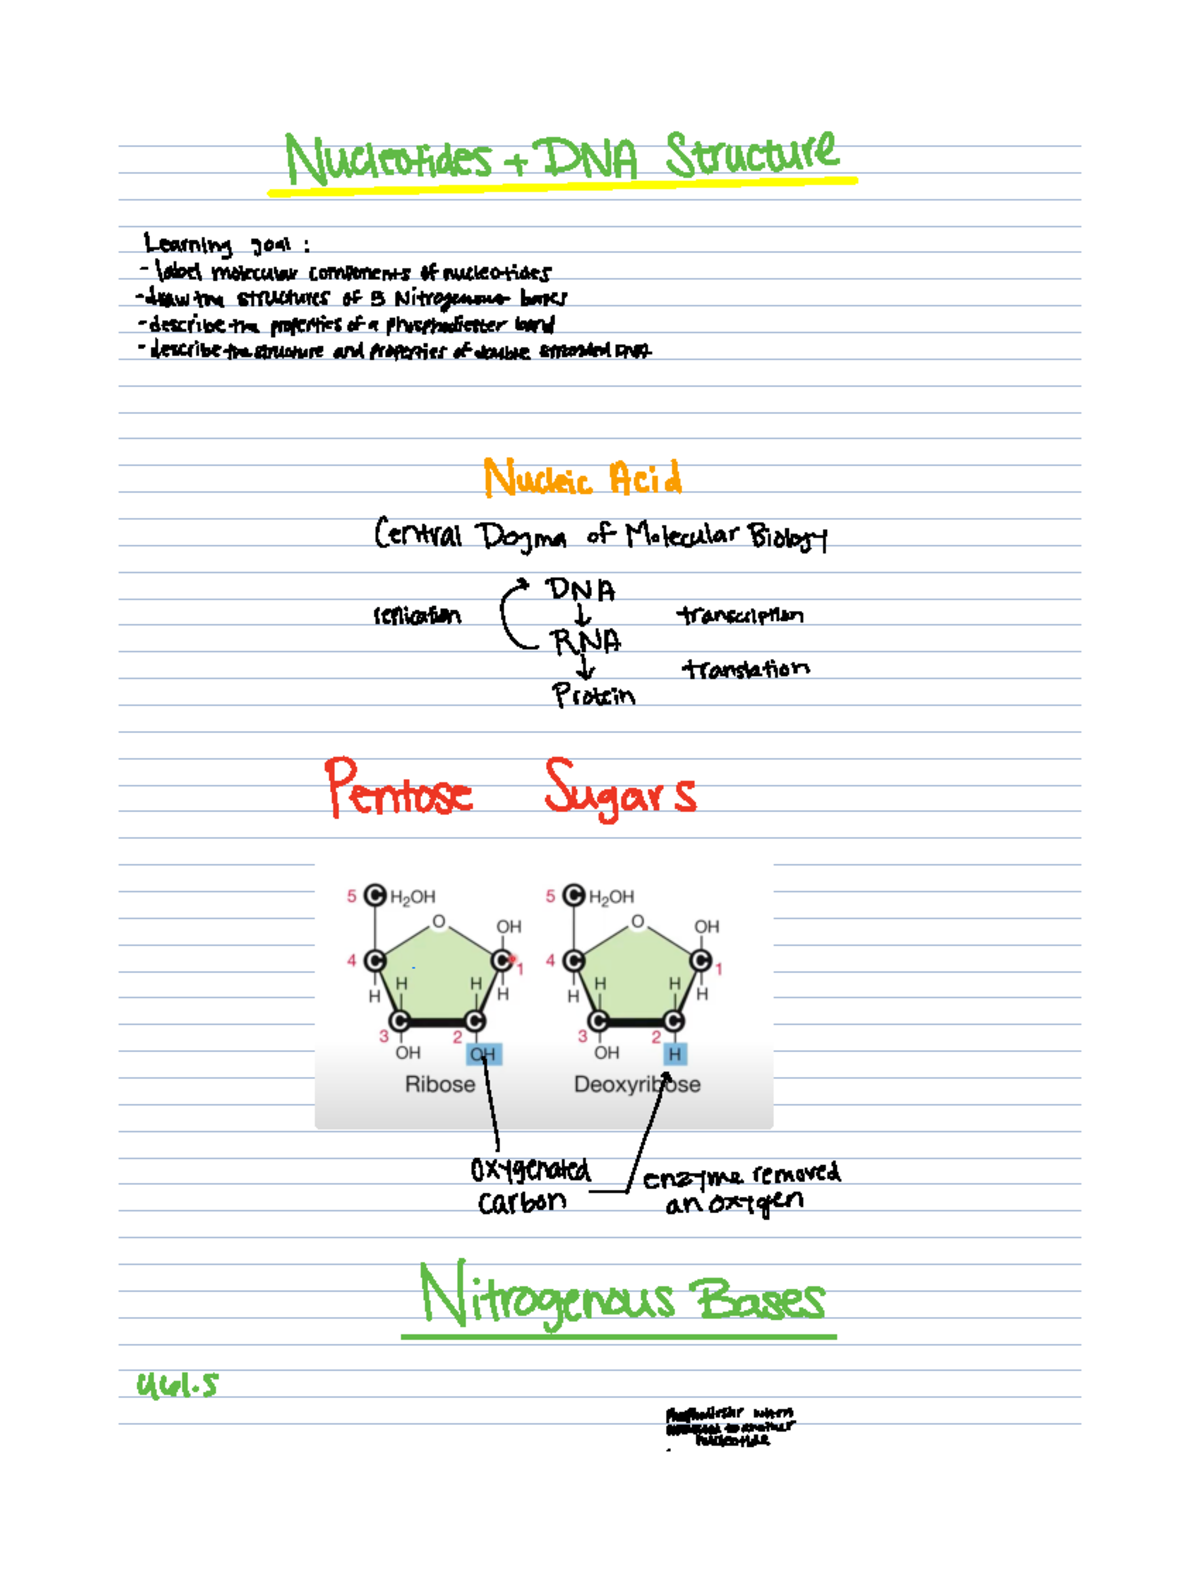 Nucleotides + DNA Structure
Learning goal :
- label molecular components of nucleotides
- draw the structures of 5 Nitrogenous bases
- describe the properties of a phosphodiester bond
- describe the structure and properties of double stranded DNA
Nucleic Acid
Central Dogma of Molecular Biology
DNA
replication transcription
RNA
translation
Protein
Pentose Sugars
5 C H2OH 5 C H2OH
O OH O OH
4 C C 1 4 C C 1
H H H H H H H H
C C C C
3 2 3 2
OH OH OH H
Ribose Deoxyribose
oxygenated enzyme removed
carbon an oxygen
Nitrogenous Bases
when
to another
nucleotide